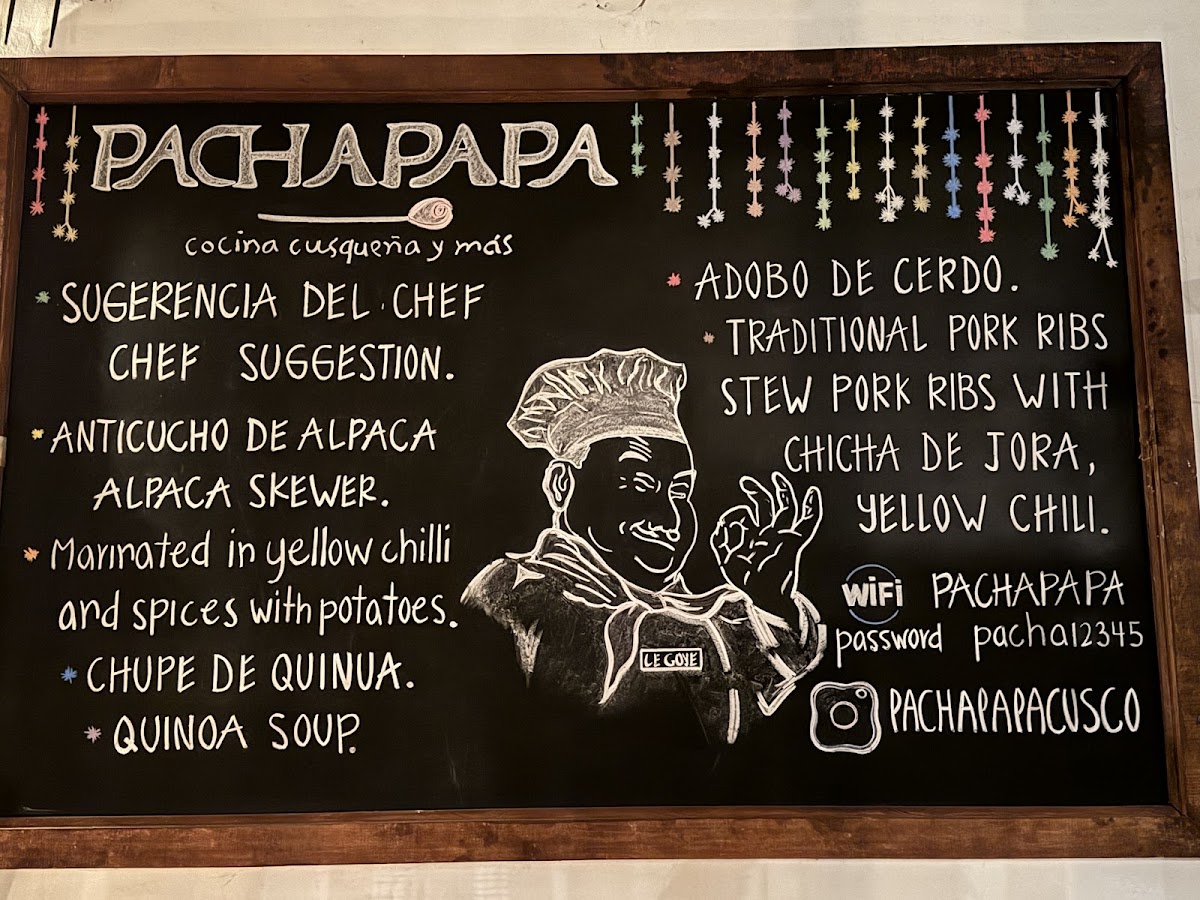 PACHAPAPA
cocina cusqueña y más
SUGERENCIA DEL CHEF
CHEF SUGGESTION.
ANTICUCHO DE ALPACA
ALPACA SKEWER.
Marinated in yellow chilli
and spices with potatoes.
CHUPE DE QUINUA.
QUINOA SOUP.
LE GOYE
ADOBO DE CERDO.
TRADITIONAL PORK RIBS
STEW PORK RIBS WITH
CHICHA DE JORA,
YELLOW CHILI.
WiFi PACHAPAPA
password pacha12345
PACHAPAPACUSCO